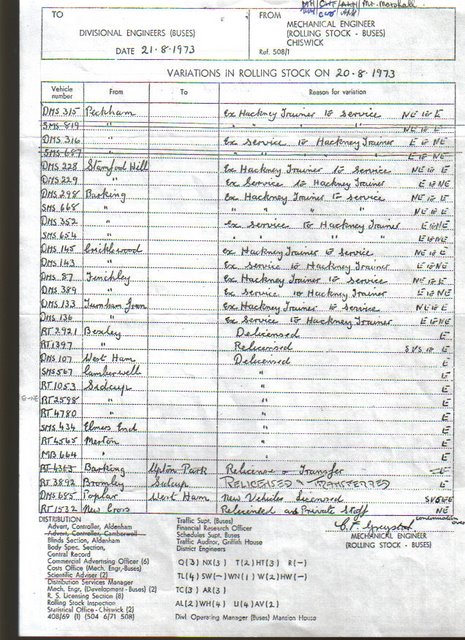 TO
DIVISIONAL ENGINEERS (BUSES)
DATE 21-8-1973
FROM
MECHANICAL ENGINEER
(ROLLING STOCK - BUSES)
CHISWICK
Ref. 508/1
Mr. Marshall
VARIATIONS IN ROLLING STOCK ON 20-8-1973
Vehicle number From To Reason for variation
DMS 315 Peckham Ex Hackney Trainer to Service NE to E
SMS 819 " " " " " NE to E
DMS 316 " Ex Service to Hackney Trainer E to NE
SMS 687 " " " " " E to NE
DMS 228 Stamford Hill Ex Hackney Trainer to Service NE to E
DMS 229 " Ex Service to Hackney Trainer E to NE
DMS 298 Barking Ex Hackney Trainer to Service NE to E
SMS 668 " " " " " NE to E
DMS 352 " Ex Service to Hackney Trainer E to NE
SMS 654 " " " " " E to NE
DMS 145 Cricklewood Ex Hackney Trainer to Service NE to E
DMS 143 " Ex Service to Hackney Trainer E to NE
DMS 87 Finchley Ex Hackney Trainer to Service NE to E
DMS 389 " Ex Service to Hackney Trainer E to NE
DMS 133 Turnham Green Ex Hackney Trainer to Service NE to E
DMS 136 " Ex Service to Hackney Trainer E to NE
RT 2921 Bexley Delicensed E
RT 1397 " Relicensed SVS to E
DMS 107 West Ham Delicensed E
SMS 567 Camberwell " E
RT 1053 Sidcup " E
RT 2598 " " E
RT 4780 " " E
SMS 434 Elmers End " E
RT 4565 Merton " E
MB 664 " " E
RT 4363 Barking Upton Park Relicense & Transfer E
RT 3892 Bromley Sidcup RELICENSED & TRANSFERRED E
DMS 685 Poplar West Ham New Vehicle Licensed SVS to NE
RT 1532 New Cross Relicensed as Private Staff NE
DISTRIBUTION
Advert, Controller, Aldenham
Advert, Controller, Camberwell
Blinds Section, Aldenham
Body Spec, Section,
Central Record
Commercial Advertising Officer (6)
Costs Office (Mech. Engr.-Buses)
Scientific Adviser (2)
Distribution Services Manager
Mech. Engr, (Development - Buses) (2)
R. S. Licensing Section (8)
Rolling Stock Inspection
Statistical Office - Chiswick (2)
408/69 (1) (504 6/71 508)
Traffic Supt. (Buses)
Financial Research Officer
Schedules Supt. Buses
Traffic Auditor, Griffith House
District Engineers
Q(3) NX(3) T(2) HT(3) R(-)
TL(4) SW(-) WN(1) W(2) HW(-)
TC(3) AR(3)
AL(2) WH(4) U(4) AV(2)
Divl. Operating Manager (Buses) Mansion House
MECHANICAL ENGINEER
(ROLLING STOCK - BUSES)